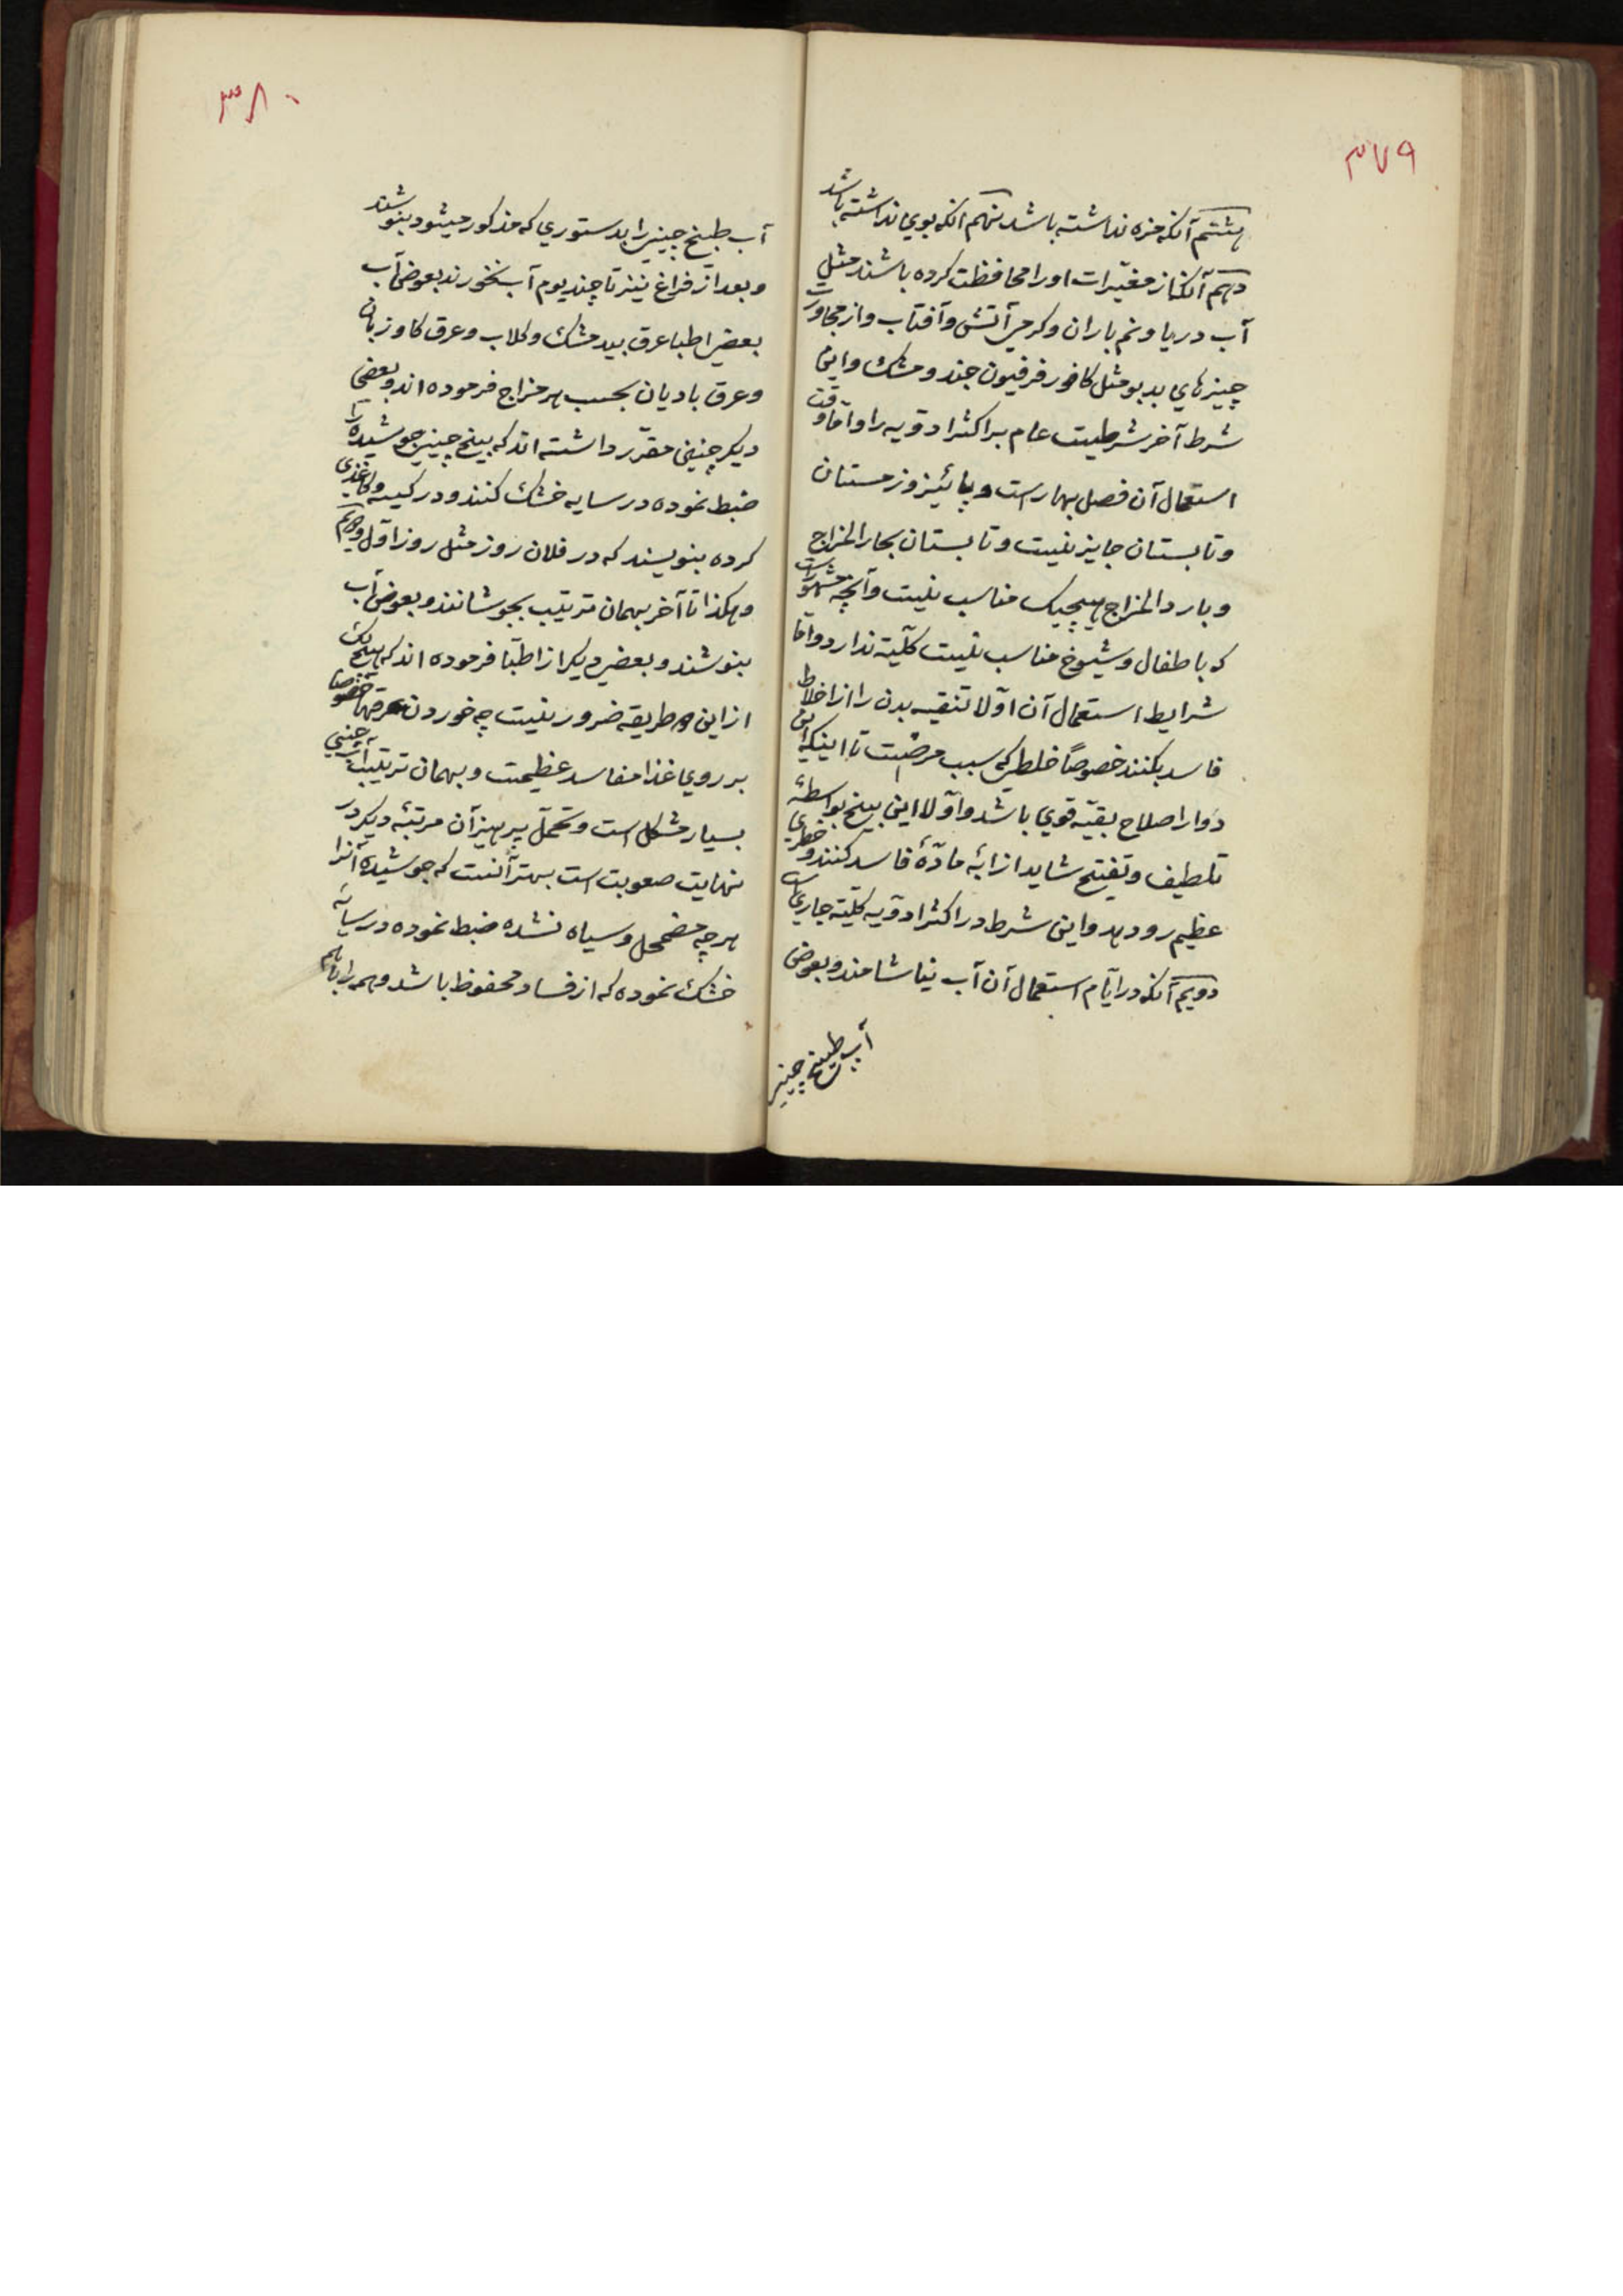 ۳۷۹
هشتم آنکه مزه نداشته باشد نهم آنکه بوی نداشته باشد
دهم آنکه از مغیرات او را محافظت کرده باشند مثل
آب دریا و نم باران و گرمی آتش و آفتاب و از مجاورت
چیزهای بدبو مثل کافور فرفیون جند و مشک و این
شرط آخر شرطیست عام بر اکثر ادویه را و اما وقت
استعمال آن فصل بهار است و پائیز و زمستان
و تابستان جایز نیست و تابستان بحار المزاج
و بارد المزاج هیچیک مناسب نیست و آنچه مشهور است
که باطفال و شیوخ مناسب نیست کلیة ندارد و اما
شرایط استعمال آن اولا تنقیه بدن را از اخلاط
فاسد بکنند خصوصاً خلطی که سبب مرضست تا اینکه این
دوا را صلاح بقیه قوی باشد و اولا این بیخ بواسطهٔ
تلطیف و تفتیح شاید از ابهٔ مادهٔ فاسد کنند و خطری
عظیم رو دهد و این شرط در اکثر ادویه کلیة جاری است
دویم آنکه در ایام استعمال آن آب نیاشامند و بعوض
آب طبیخ چینی
۳۸۰
آب طبیخ چینی را بدستوری که مذکور میشود بنوشند
و بعد از فراغ نیز تا چند یوم آب نخورند بعوض آب
بعضی اطبا عرق بیدمشک و گلاب و عرق کاوزبان
و عرق بادیان بحسب هر مزاج فرموده اند و بعضی
دیگر چنین مقرر داشته اند که بیخ چینی جوشیده را
ضبط نموده در سایه خشک کنند و در کیسه و کاغذی
کرده بنویسند که در فلان روز مثل روز اول و دویم
و هکذا تا آخر بهمان ترتیب بجوشانند و بعوض آب
بنوشند و بعضی دیگر از اطبا فرموده اند که هیچ یک
از این طریقه ضرور نیست چه خوردن عرقها خصوصا
بر روی غذا مفاسد عظیمست و بهمان ترتیب آب چینی
بسیار مشکل است و تحمل پرهیز آن مرتبهٔ دیگر در
نهایت صعوبت است بهتر آنست که جوشیدهٔ آنرا
هر چه مضمحل و سیاه نشده ضبط نموده در سایه
خشک نموده که از فساد محفوظ باشد و همه را باهم